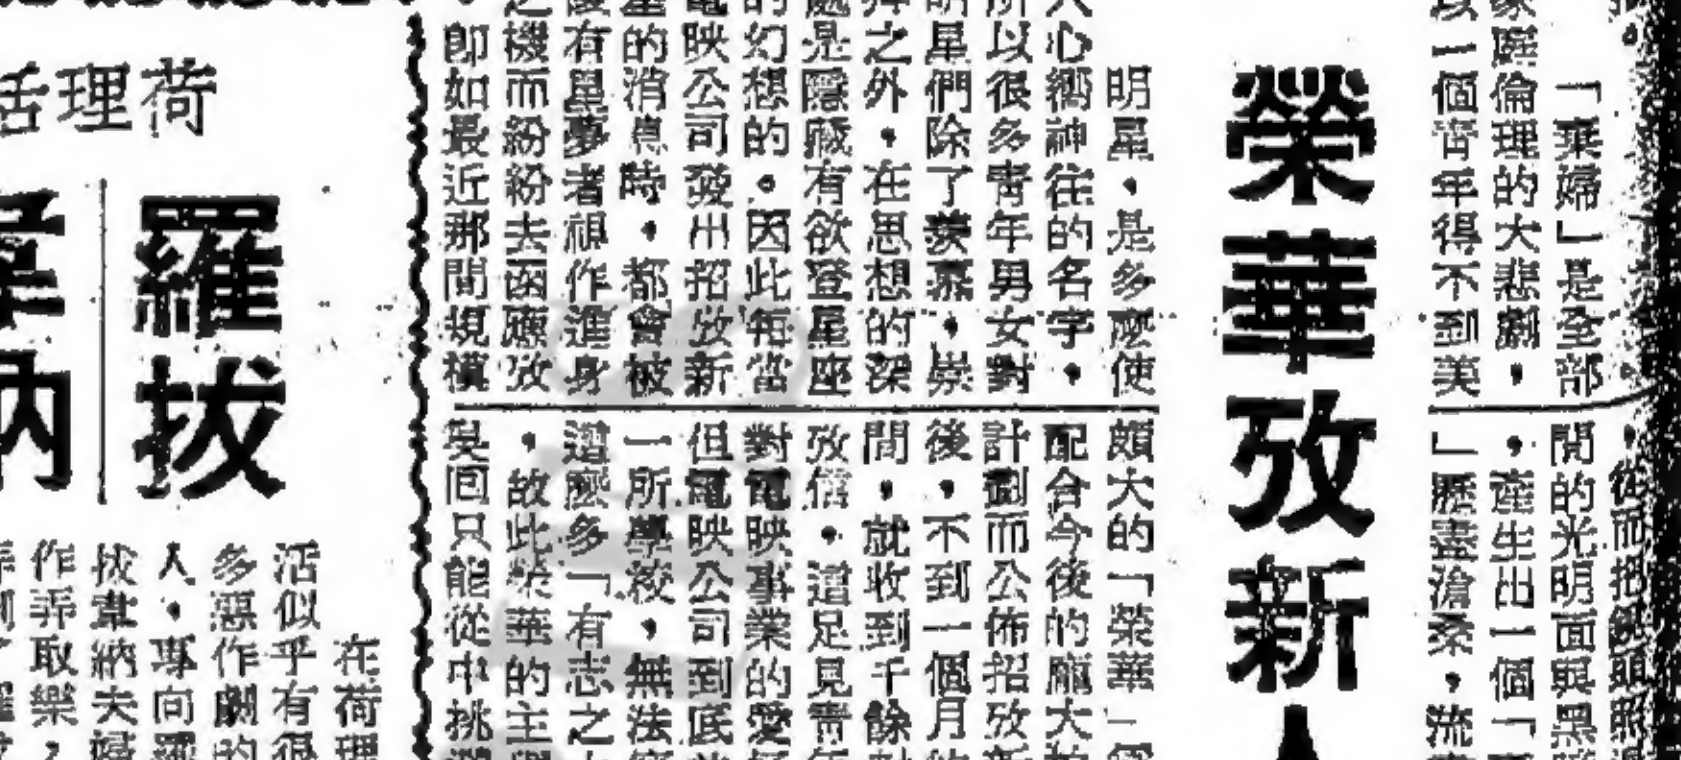 「棄婦」是全部
家庭倫理的大悲劇，
以一個青年得不到美
閒的光明面與黑
，產生出一個「
」歷盡滄桑，流
榮華攷新人
明星，是多麼使
人心嚮神往的名字，
所以很多青年男女對
明星們除了羨慕，崇
拜之外，在思想的深
處是隱藏有欲登星座
的幻想的。因此每當
電映公司發出招攷新
星的消息時，都會被
有星夢者視作進身
之機而紛紛去函應攷
即如最近那間規模
頗大的「榮華」
配合今後的龐大
計劃而公佈招攷新
後，不到一個月
間，就收到千餘
攷信，這足見青年
對電映事業的愛
但電映公司到底
一所學校，無法
這麼多「有志之
，故此榮華的主
吳回只能從中挑
荷理活
羅拔
在荷理
活似乎有很
多惡作劇的
人，專向羅
拔韋納夫婦
作弄取樂，